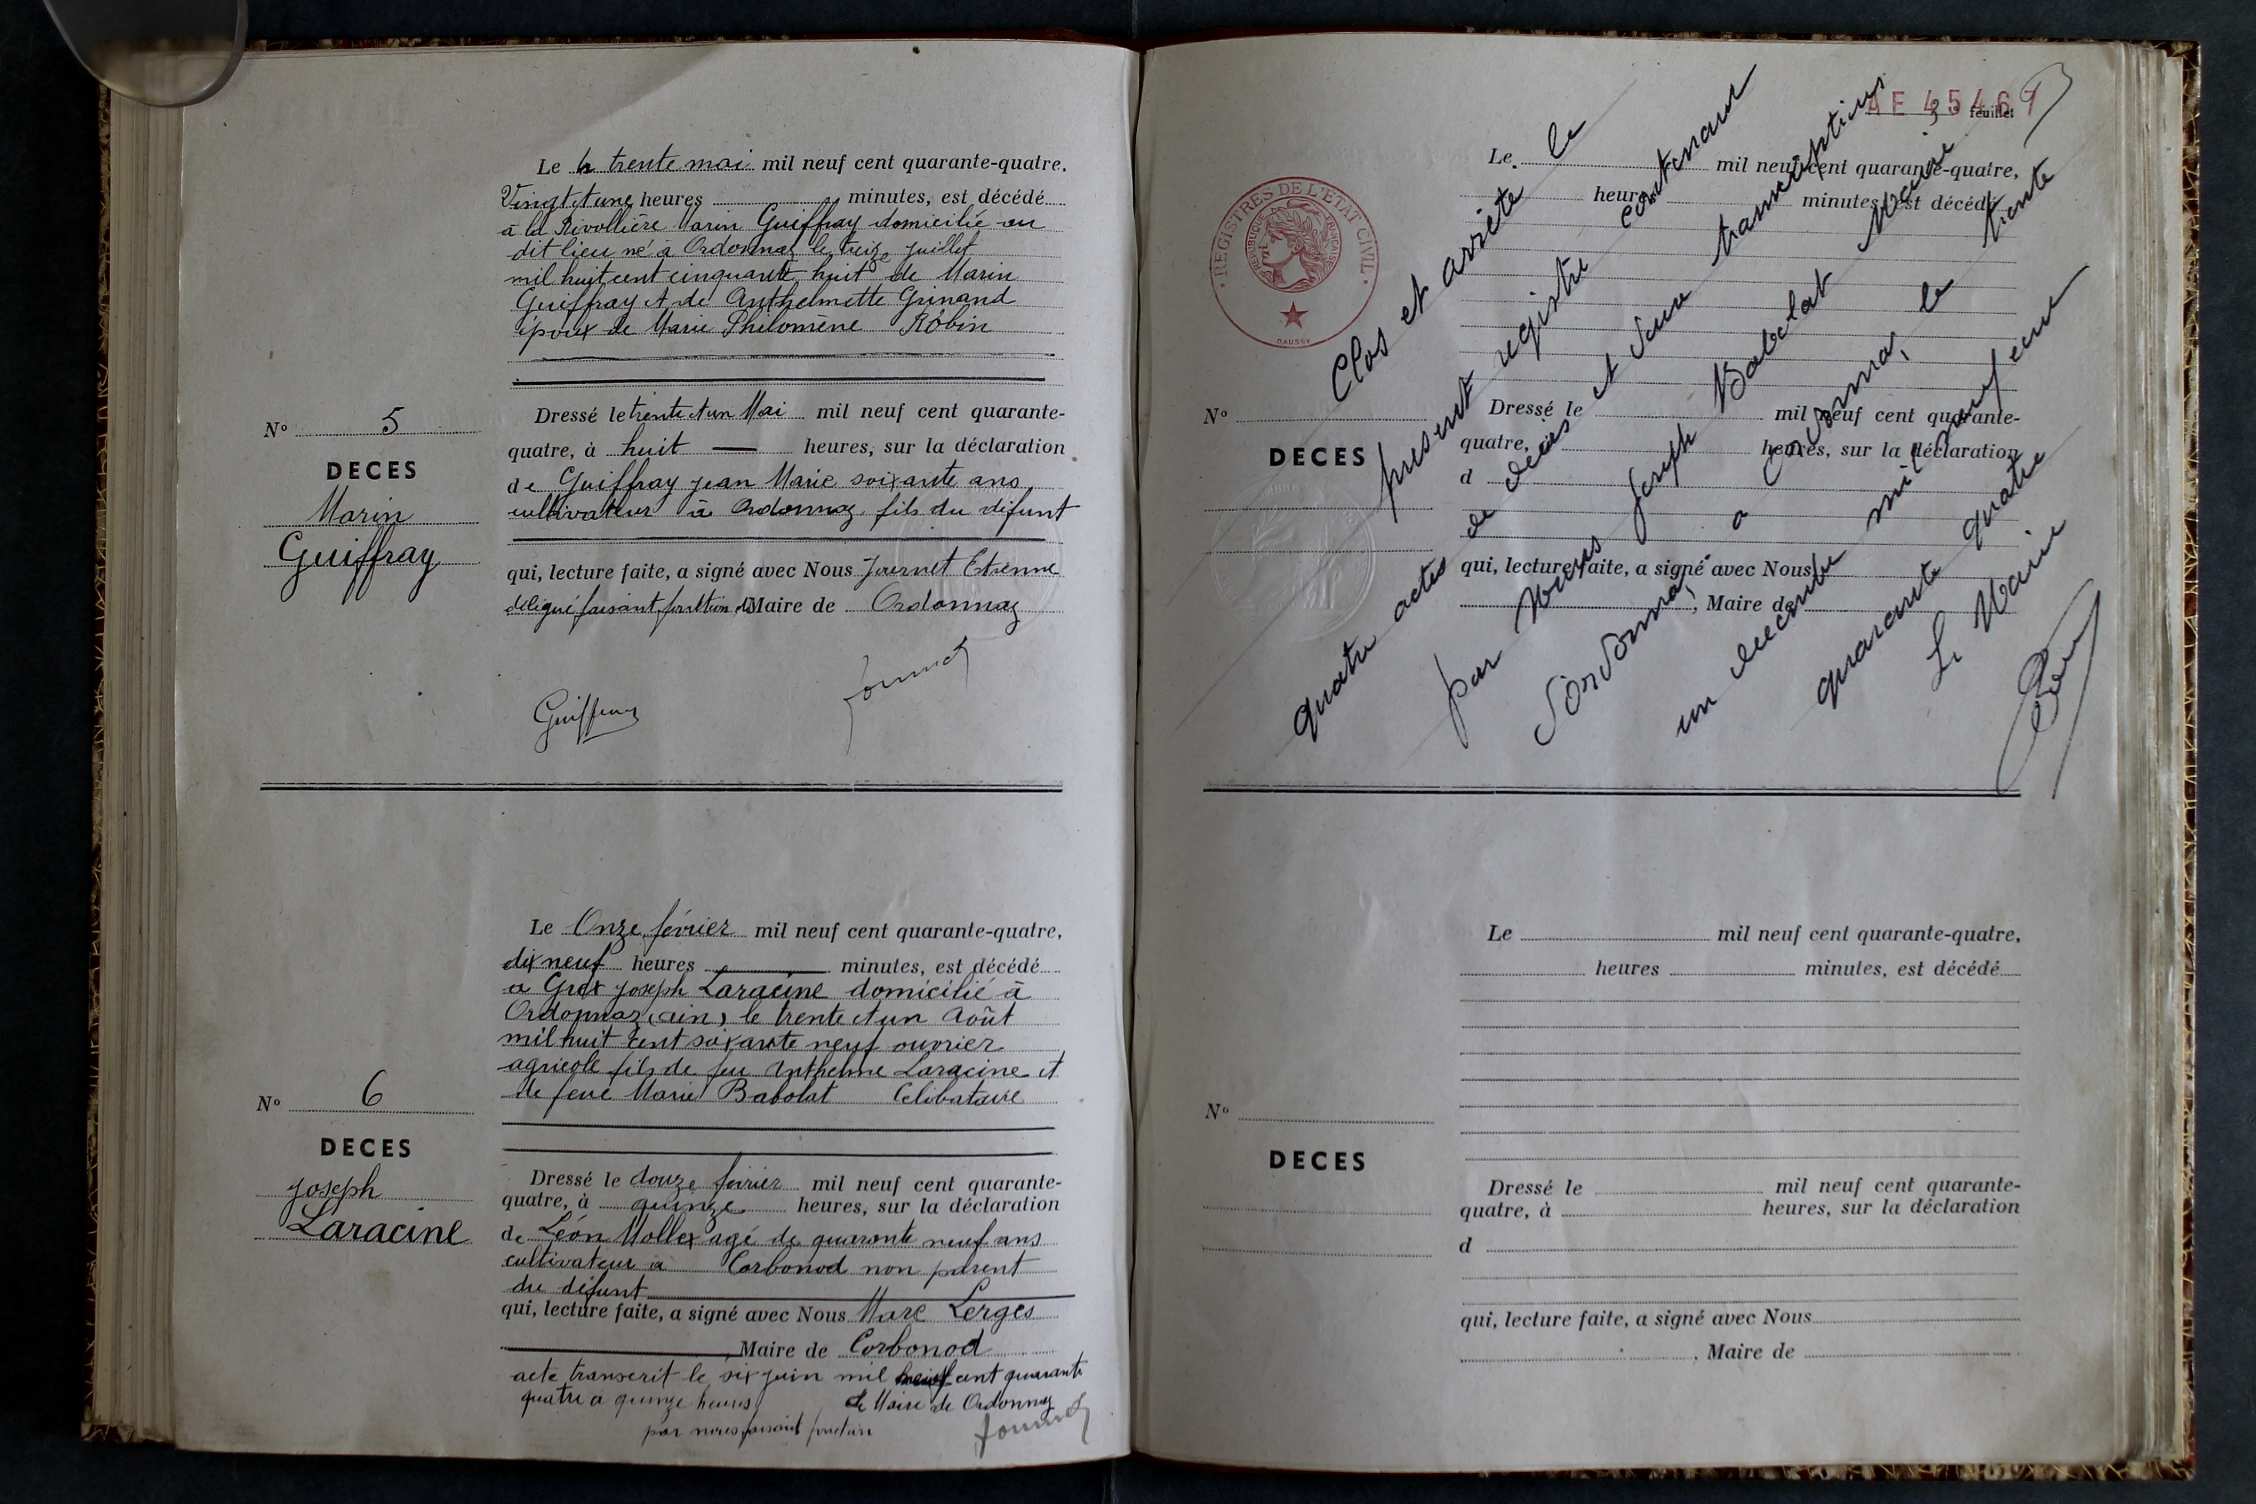 Le le trente mai mil neuf cent quarante-quatre,
Vingt et une heures minutes, est décédé
à la Rivollière Marin Guiffray domicilié au
dit lieu né à Ordonnaz le treize juillet
mil huit cent cinquante huit de Marin
Guiffray et de Anthelmette Grinand
époux de Marie Philomène Robin
N° 5
DECES
Marin
Guiffray
Dressé le trente et un Mai mil neuf cent quarante-
quatre, à huit heures, sur la déclaration
de Guiffray Jean Marie soixante ans
cultivateur à Ordonnaz fils du défunt
qui, lecture faite, a signé avec Nous Journet Etienne
délégué faisant fonction de Maire de Ordonnaz
Guiffray
Journet
Le Onze février mil neuf cent quarante-quatre,
dix neuf heures minutes, est décédé
a Gret Joseph Laracine domicilié à
Ordonnaz (ain) le trente et un Août
mil huit cent soixante neuf ouvrier
agricole fils de feu Anthelme Laracine et
de feue Marie Babolat Célibataire
N° 6
DECES
Joseph
Laracine
Dressé le douze février mil neuf cent quarante-
quatre, à quinze heures, sur la déclaration
de Léon Mollex agé de quarante neuf ans
cultivateur à Corbonod non parent
du défunt
qui, lecture faite, a signé avec Nous Marc Lerges
Maire de Corbonod
acte transcrit le six juin mil neuf cent quarante
quatre a quinze heures Le Maire de Ordonnaz
par nous faisant fonction Journet
AE 45467
3e feuillet
REGISTRES DE L'ETAT CIVIL
REPUBLIQUE FRANÇAISE
DAUSSY
Le mil neuf cent quarante-quatre,
heures minutes, est décédé
N°
DECES
Dressé le mil neuf cent quarante-
quatre, heures, sur la déclaration
d
qui, lecture faite, a signé avec Nous
, Maire de
Clos et arrêté le
présent registre contenant
quatre actes de décès et deux transcriptions
par Nous Joseph Babolat Maire
d'Ordonnaz, a Ordonnaz, le trente
un décembre mil neuf cent
quarante quatre
Le Maire
Le mil neuf cent quarante-quatre,
heures minutes, est décédé
N°
DECES
Dressé le mil neuf cent quarante-
quatre, à heures, sur la déclaration
d
qui, lecture faite, a signé avec Nous
, Maire de